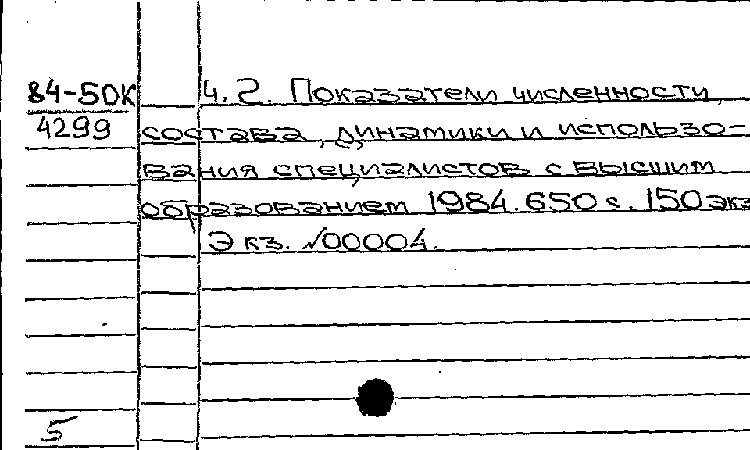 84-50К Ч.2. Показатели численности,
4299 состава, динамики и использо-
вания специалистов с высшим
образованием 1984. 650 с. 150 экз
Экз. №00004.
5